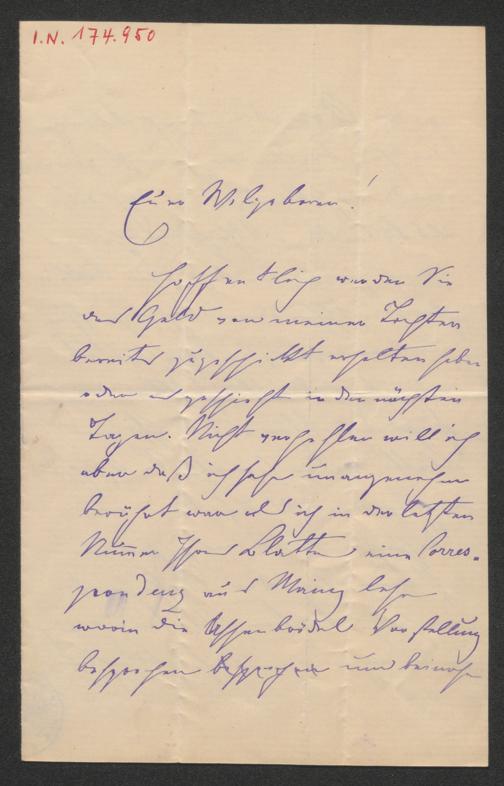 I.N. 174.950
Euer Wolgeboren!
Hoffentlich werden Sie
das Geld von meiner Tochter
bereits zugeschickt erhalten haben
oder es geschieht in den nächsten
Tagen. Nicht verhehlen will ich
aber daß ich sehr unangenehm
berührt war als ich in der letzten
Numer Ihres Blattes eine Corres-
pondenz aus Mainz las
worin die Aschenbrödel Vorstellung
besprochen besprochen und beinahe